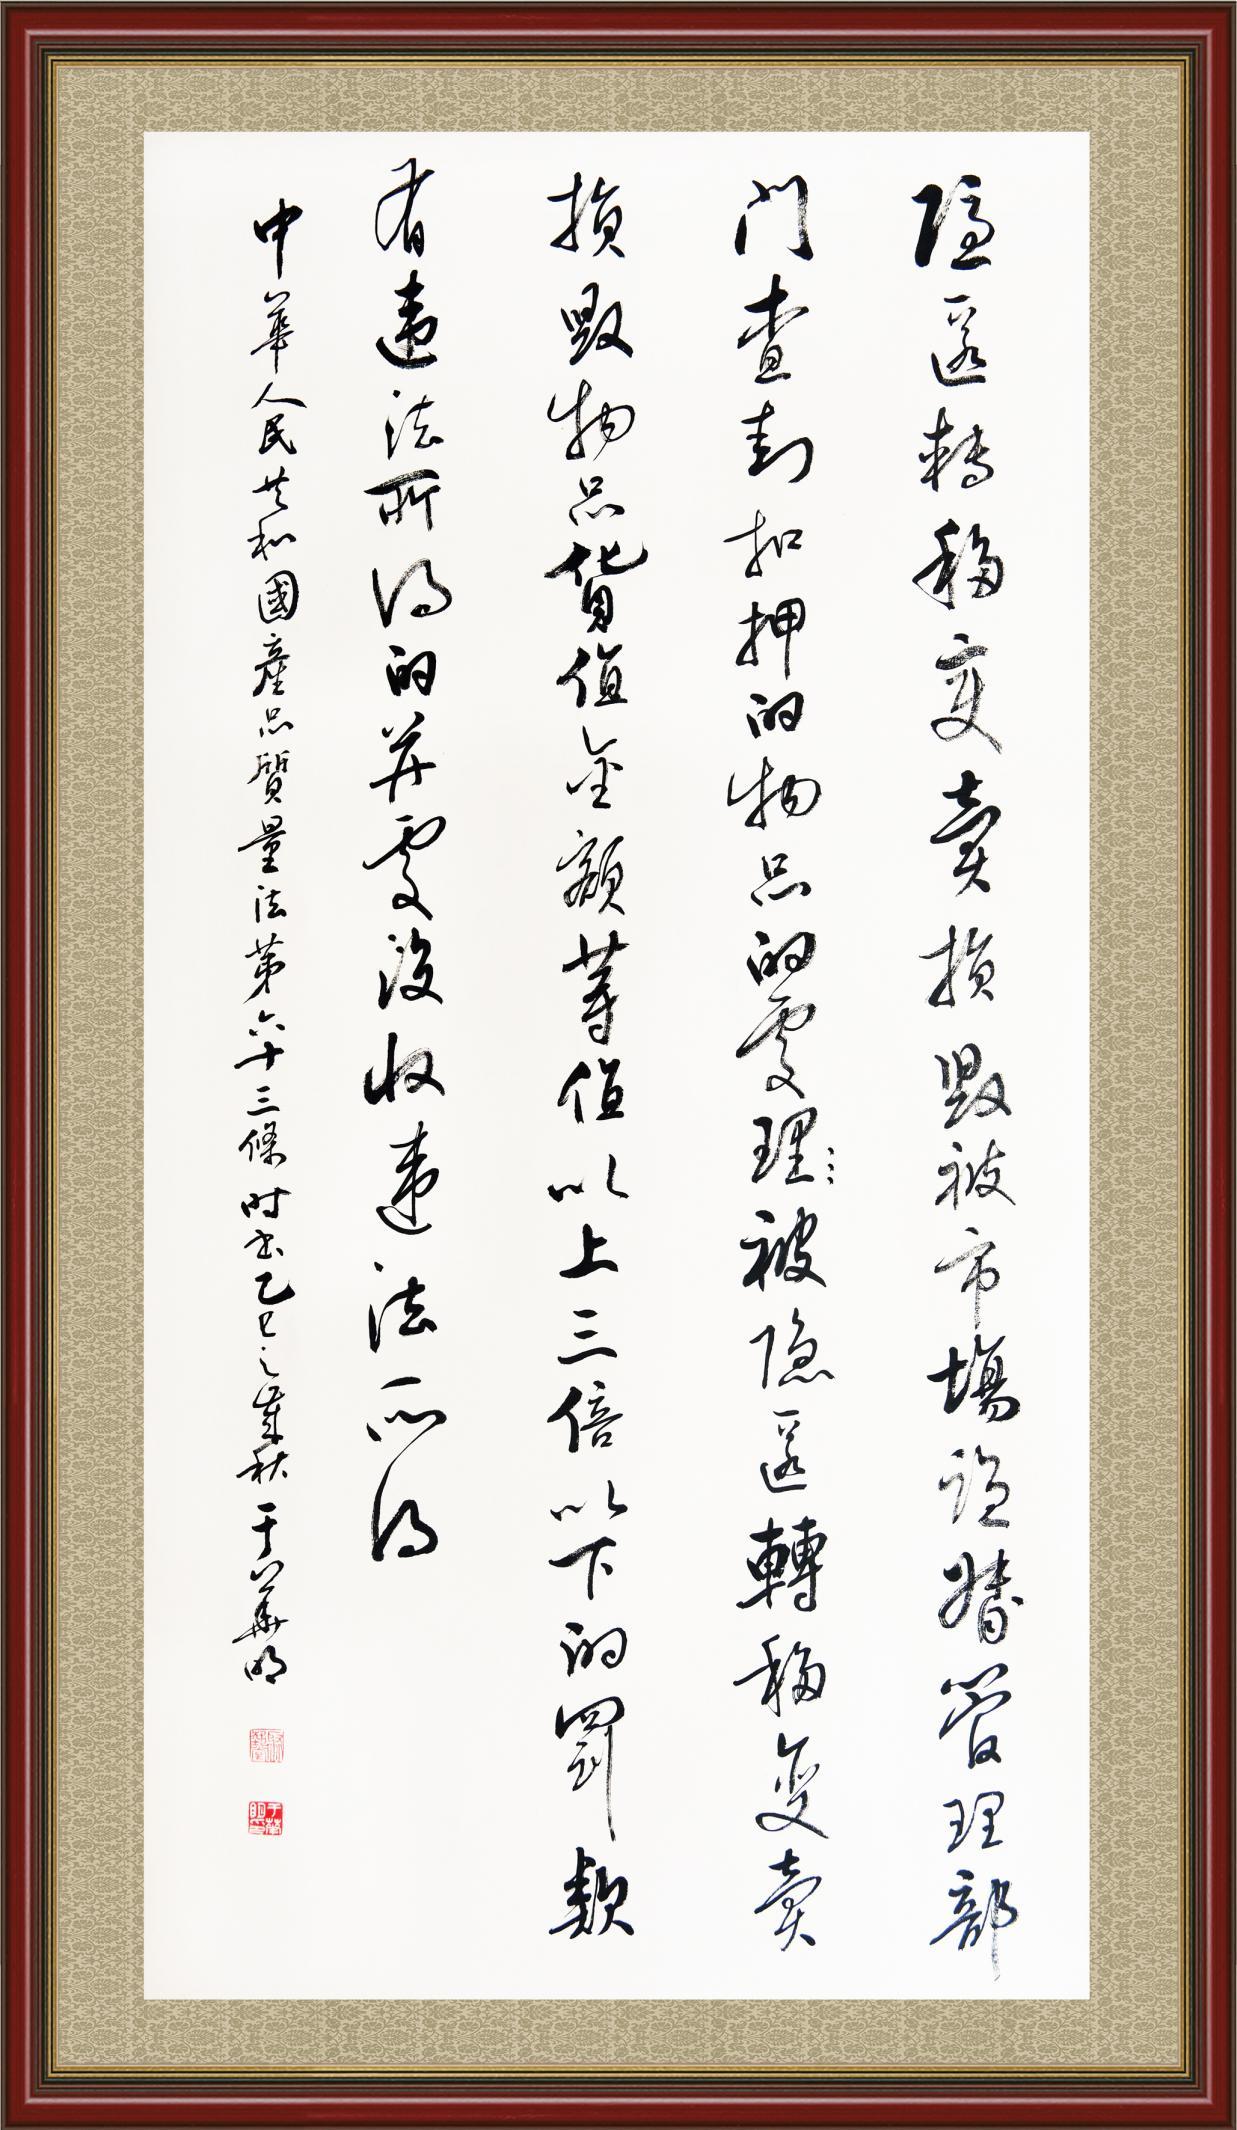 隐匿轉移变賣損毁被市場监督管理部
門查封扣押的物品的處理被隐匿轉移變賣
損毁物品貨值金額等值以上三倍以下的罰款
有违法所得的并處没收违法所得
中華人民共和國産品質量法第六十三條 时书乙巳之歲秋 于華明